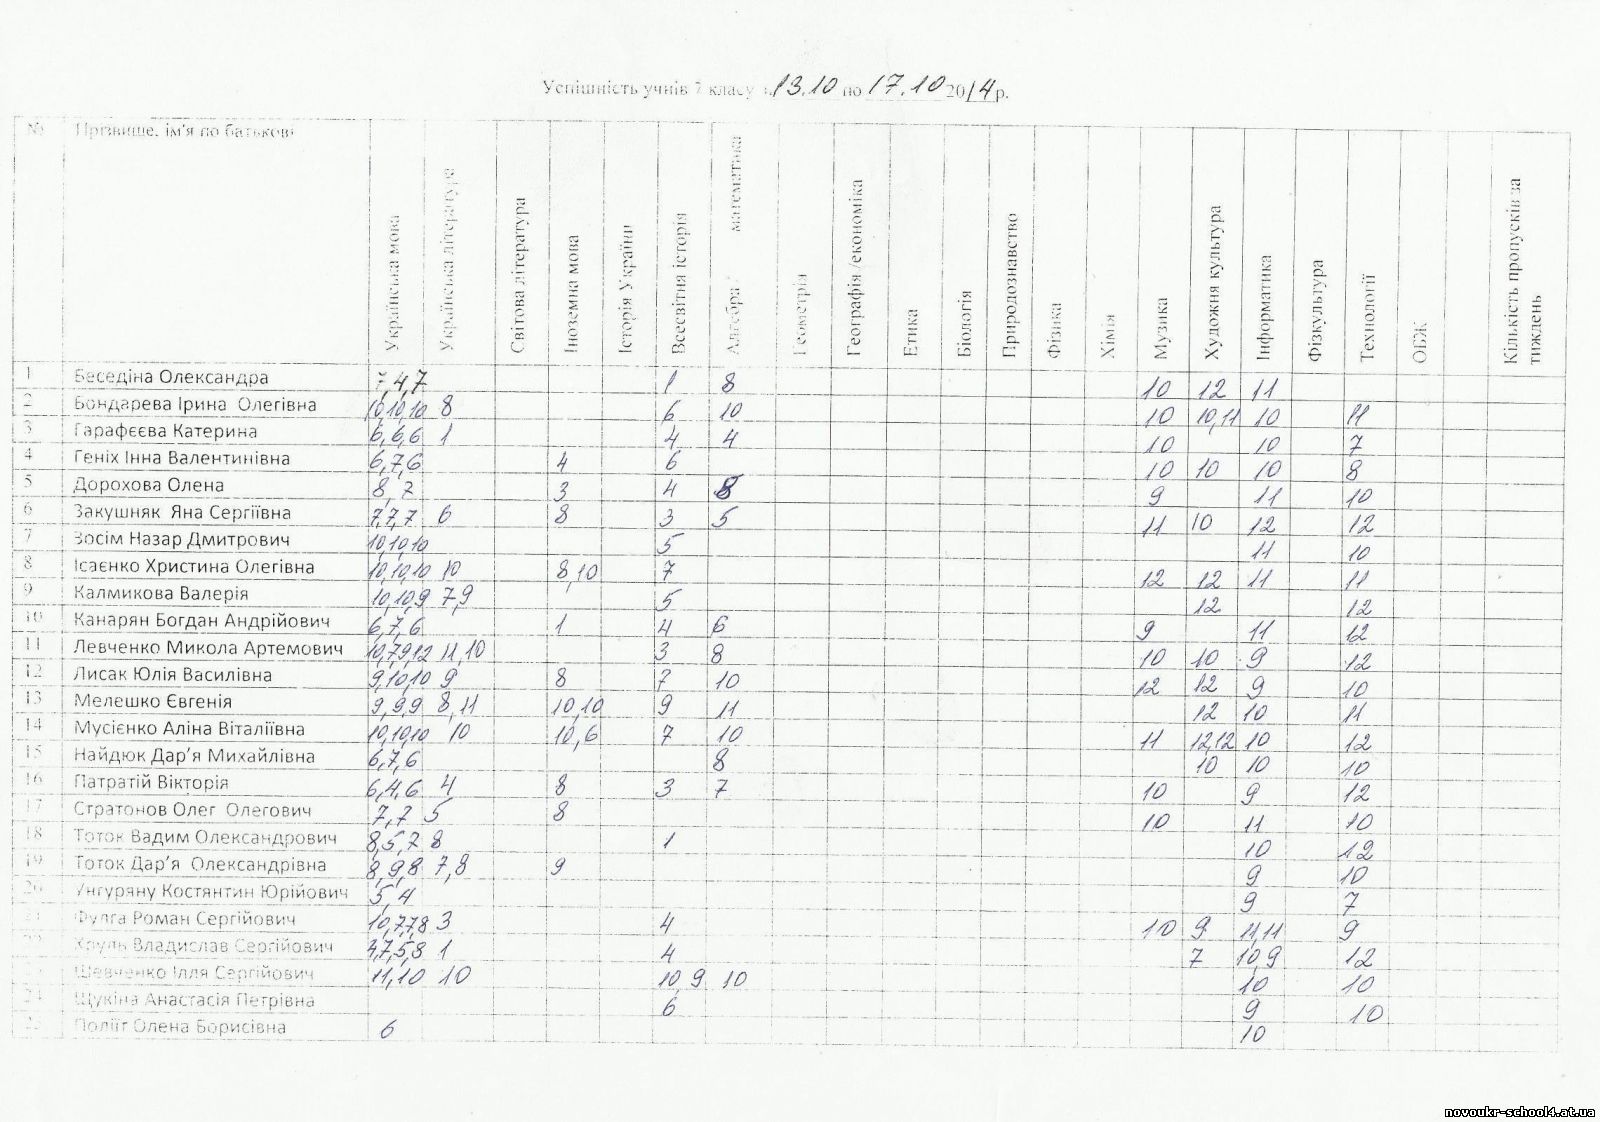 Успішність учнів 7 класу з 13.10 по 17.10 2014р.
№ Прізвище, ім'я по батькові Українська мова Українська література Світова література Іноземна мова Історія України Всесвітня історія Алгебра математика Геометрія Географія /економіка Етика Біологія Природознавство Фізика Хімія Музика Художня культура Інформатика Фізкультура Технології ОБЖ Кількість пропусків за тиждень
1 Беседіна Олександра 7,4,7 1 8 10 12 11
2 Бондарева Ірина Олегівна 10,10,10 8 6 10 10 10,11 10 11
3 Гарафєєва Катерина 6,6,6 1 4 4 10 10 7
4 Геніх Інна Валентинівна 6,7,6 4 6 10 10 10 8
5 Дорохова Олена 8, 7 3 4 8 9 11 10
6 Закушняк Яна Сергіївна 7,7,7 6 8 3 5 11 10 12 12
7 Зосім Назар Дмитрович 10,10,10 5 11 10
8 Ісаєнко Христина Олегівна 10,10,10 10 8,10 7 12 12 11 11
9 Калмикова Валерія 10,10,9 7,9 5 12 12
10 Канарян Богдан Андрійович 6,7,6 1 4 6 9 11 12
11 Левченко Микола Артемович 10,7,9,12 11,10 3 8 10 10 9 12
12 Лисак Юлія Василівна 9,10,10 9 8 7 10 12 12 9 10
13 Мелешко Євгенія 9,9,9 8,11 10,10 9 11 12 10 11
14 Мусієнко Аліна Віталіївна 10,10,10 10 10,6 7 10 11 12,12 10 12
15 Найдюк Дар’я Михайлівна 6,7,6 8 10 10 10
16 Патратій Вікторія 6,4,6 4 8 3 7 10 9 12
17 Стратонов Олег Олегович 7,7 5 8 10 11 10
18 Тоток Вадим Олександрович 8,5,7 8 1 10 12
19 Тоток Дар’я Олександрівна 8,9,8 7,8 9 9 10
20 Унгуряну Костянтин Юрійович 5,4 9 7
21 Фулга Роман Сергійович 10,7,7,8 3 4 10 9 11,11 9
22 Хруль Владислав Сергійович 4,7,5,8 1 4 7 10,9 12
23 Шевченко Ілля Сергійович 11,10 10 10,9 10 10 10
24 Щукіна Анастасія Петрівна 6 9 10
25 Поліїт Олена Борисівна 6 10
novoukr-school4.at.ua